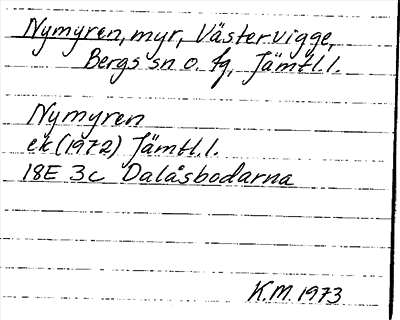 Nymyren, myr, Väster-Vigge,
Bergs sn o. tg, Jämtl.l.
Nymyren
ek (1972) Jämtl.l.
18E 3c Dalåsbodarna
K.M. 1973